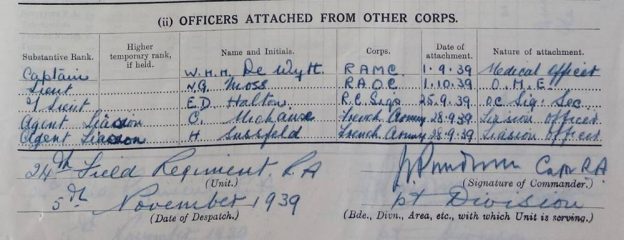 (ii) OFFICERS ATTACHED FROM OTHER CORPS.
Substantive Rank. Higher temporary rank, if held. Name and Initials. Corps. Date of attachment. Nature of attachment.
Captain W.H.H. De Wytt. R A M C. 1.9.39 Medical Officer
Lieut N.G. Moss R A O C. 1.10.39 O. M. E.
2/Lieut E.D. Halton. R.C. Sigs 25.9.39 O.C. Sig. Sec.
Agent Liaison C. French Army 28.9.39 Liaison Officer
Agent Liaison H French Army 28.9.39 Liaison Officer
24th Field Regiment. R.A Capt R.A.
(Unit.) (Signature of Commander.)
5th November 1939 1st Division
(Date of Despatch.) (Bde., Divn., Area, etc., with which Unit is serving.)